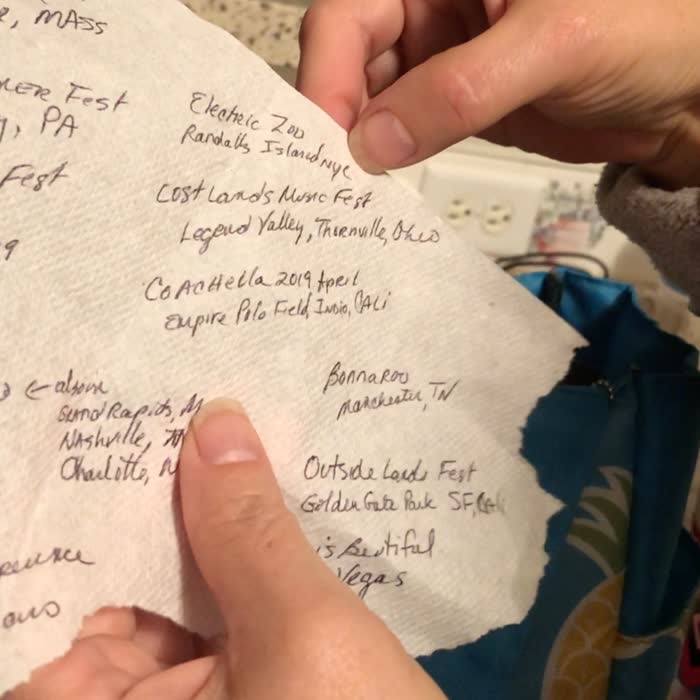 MASS
Fest
PA
Fest
9
Electric Zoo
Randalls Island NYC
Lost Lands Music Fest
Legend Valley, Thornville, Ohio
Coachella 2019 April
Empire Polo Field, Indio, CALi
← above
Grand Rapids, M
Nashville, TN
Charlotte, N
Bonnaroo
Manchester, TN
Outside Lands Fest
Golden Gate Park SF, Cali
is Beutiful
Vegas